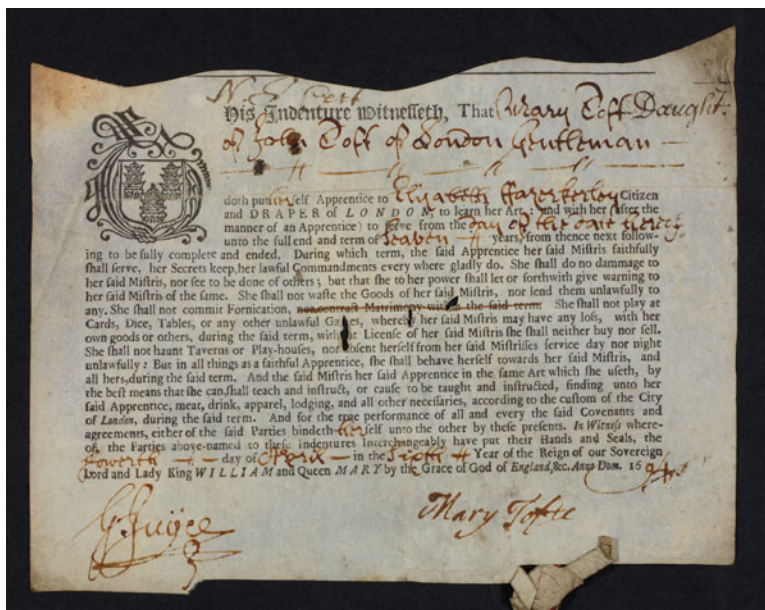 His Indenture Witnesseth, That Mary Toft Daught.
of John Toft of London Gentleman
doth put herself Apprentice to Elizabeth Citizen
and DRAPER of LONDON, to learn her Art; and with her (after the
manner of an Apprentice) to serve from the day of the date hereof
unto the full end and term of Seaven years, from thence next follow-
ing to be fully complete and ended. During which term, the said Apprentice her said Mistris faithfully
shall serve, her Secrets keep, her lawful Commandments every where gladly do. She shall do no damage to
her said Mistris, nor see to be done of others; but that she to her power shall let or forthwith give warning to
her said Mistris of the same. She shall not waste the Goods of her said Mistris, nor lend them unlawfully to
any. She shall not commit Fornication, nor contract Matrimony within the said term. She shall not play at
Cards, Dice, Tables, or any other unlawful Games, whereby her said Mistris may have any loss, with her
own goods or others, during the said term, without License of her said Mistris she shall neither buy nor sell.
She shall not haunt Taverns or Play-houses, nor absent herself from her said Mistrises service day nor night
unlawfully: But in all things as a faithful Apprentice, she shall behave herself towards her said Mistris, and
all hers, during the said term. And the said Mistris her said Apprentice in the same Art which she useth, by
the best means that she can, shall teach and instruct, or cause to be taught and instructed, finding unto her
said Apprentice, meat, drink, apparel, lodging, and all other necessaries, according to the custom of the City
of London, during the said term. And for the true performance of all and every the said Covenants and
agreements, either of the said Parties bindeth herself unto the other by these presents. In Witness where-
of, the Parties above-named to these indentures Interchangeably have put their Hands and Seals, the
fowerth day of Aprill in the Sixth Year of the Reign of our Sovereign
Lord and Lady King WILLIAM and Queen MARY by the Grace of God of England, &c. Anno Dom. 1694
Mary Tofte